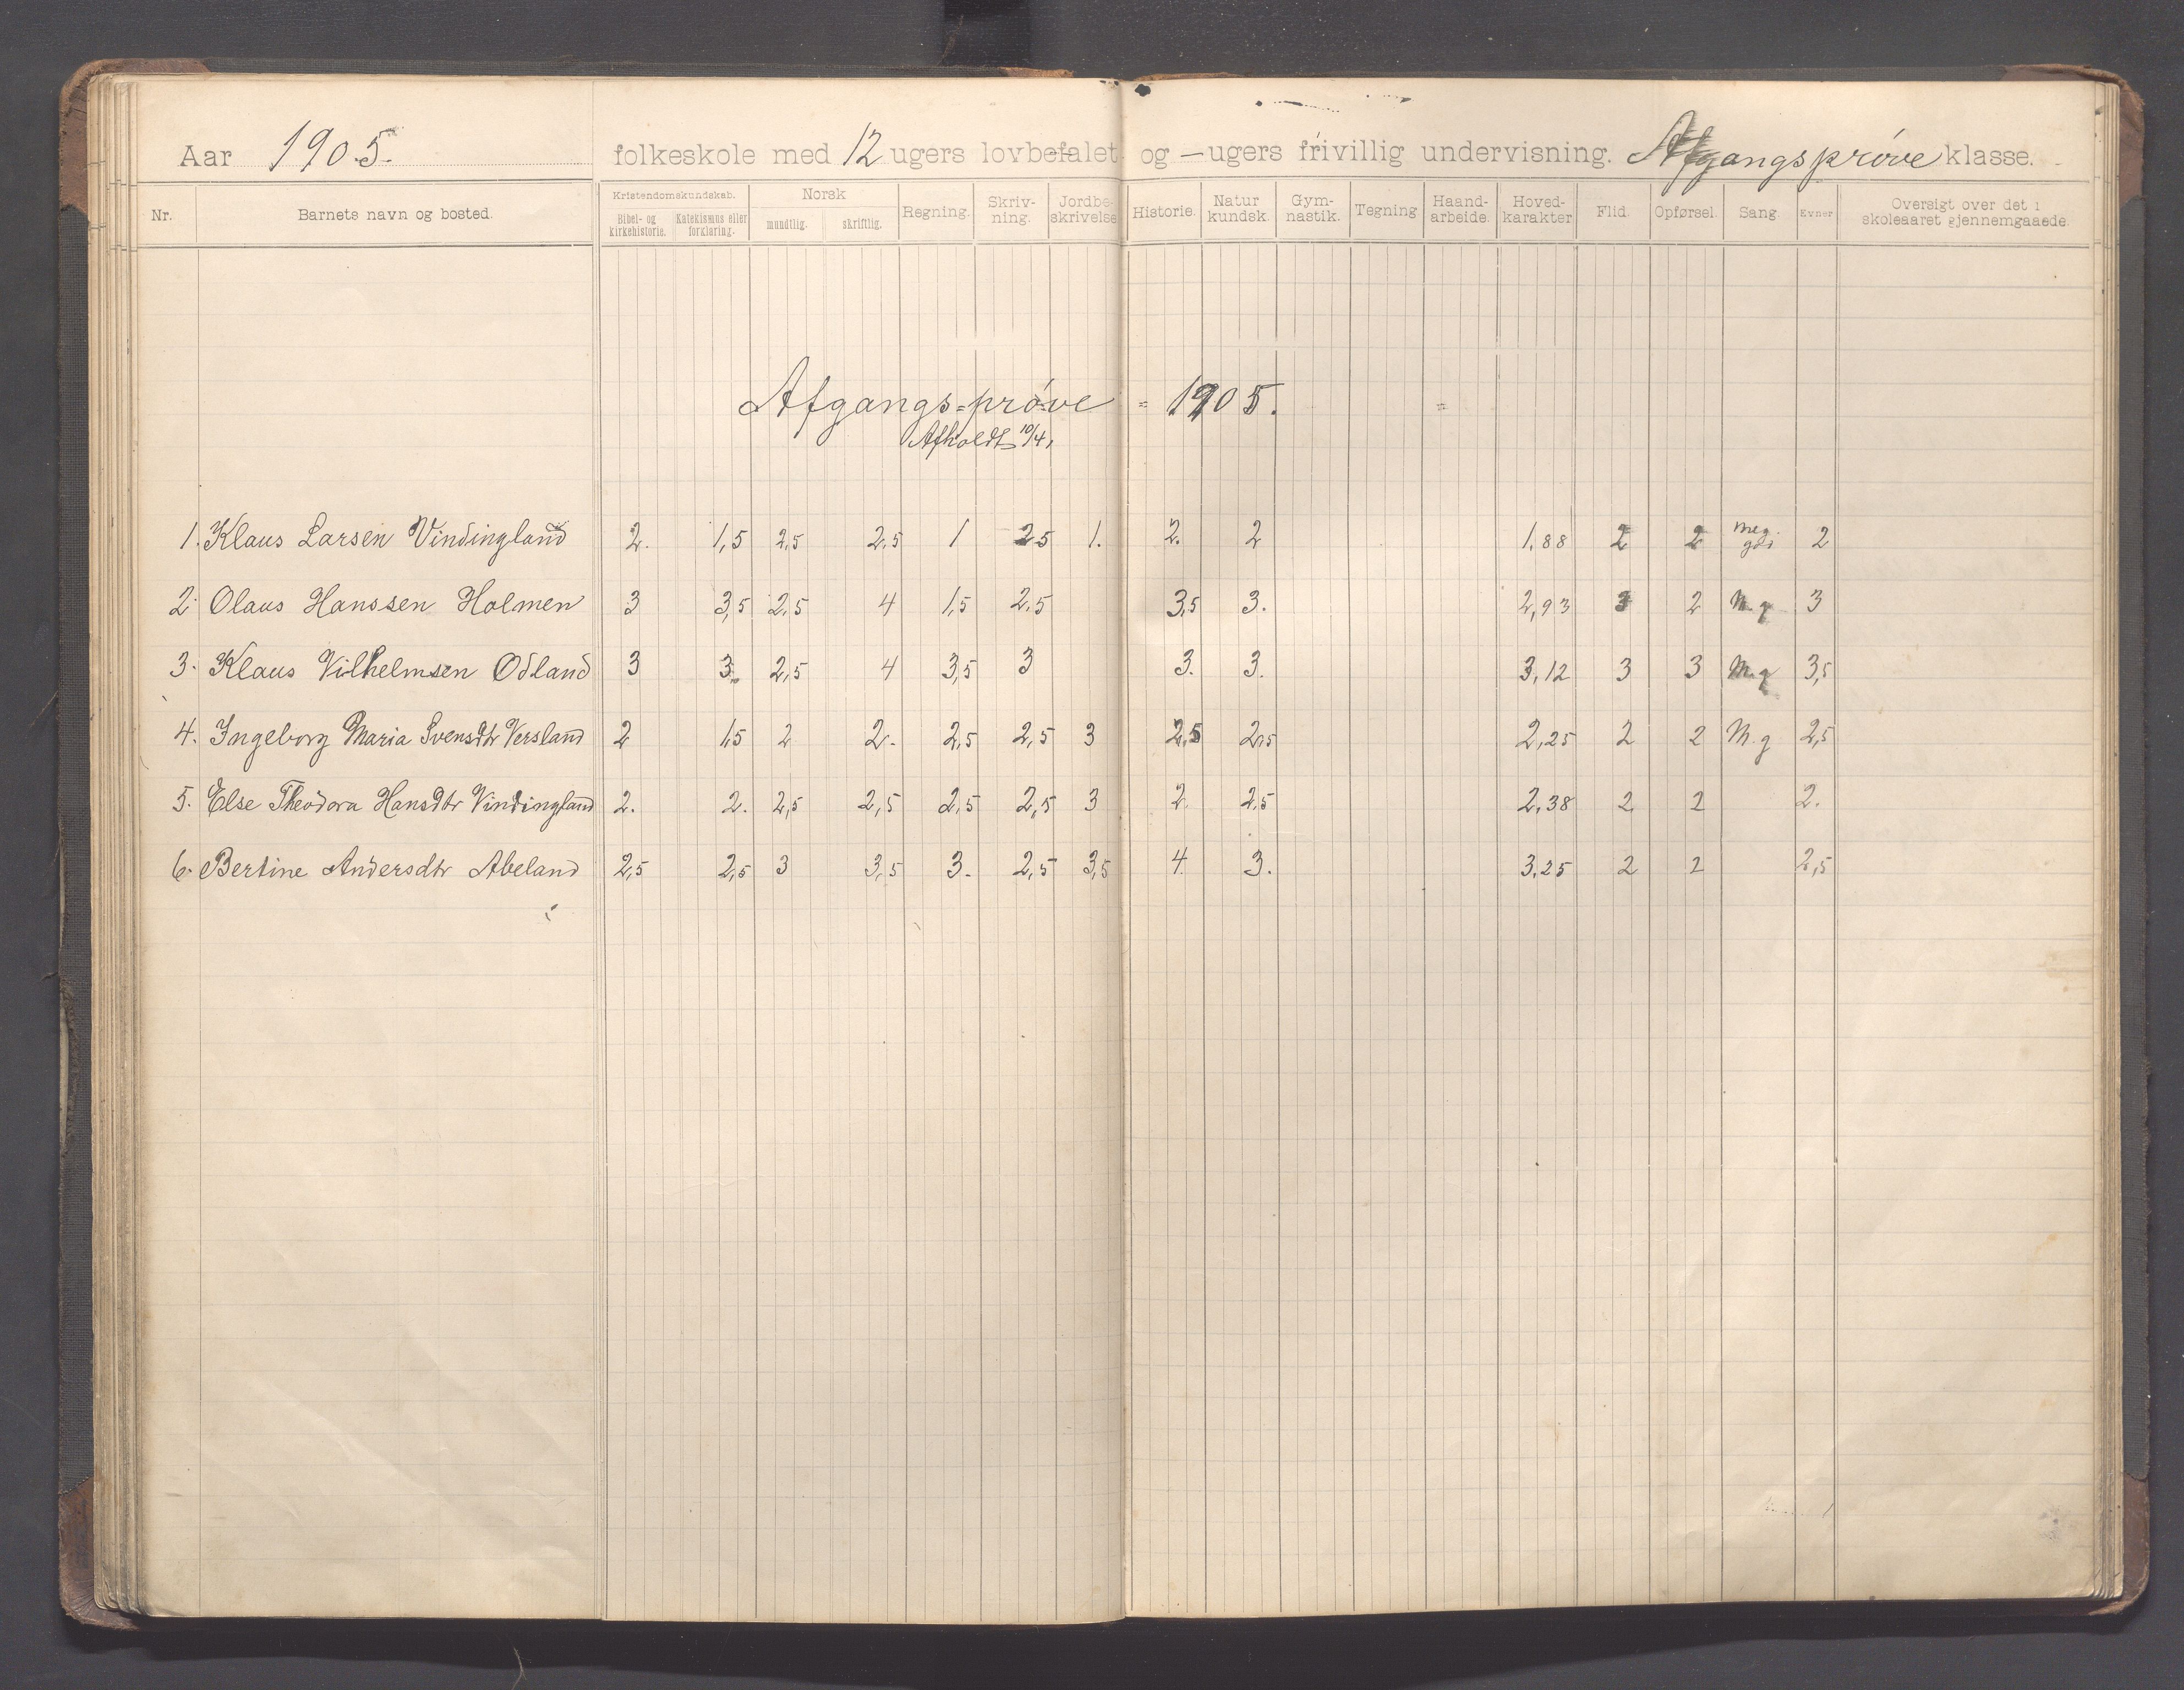 Aar 1905. folkeskole med 12 ugers lovbefalet og — ugers frivillig undervisning. Afgangsprøve klasse.
Nr. Barnets navn og bosted. Kristendomskundskab. Bibel- og kirkehistorie. Katekismus eller forklaring. Norsk mundtlig. skriftlig. Regning. Skriv-ning. Jordbe-skrivelse Historie. Natur kundsk. Gym-nastik. Tegning Haand-arbeide. Hoved-karakter Flid. Opførsel. Sang. Evner Oversigt over det i skoleaaret gjennemgaaede.
Afgangs=prøve = 1905.
Afholdt 10/4,
1. Klaus Larsen Vindingland 2. 1,5 2,5 2,5 1 2,5 1. 2. 2 1,88 2 2 meg. gdt. 2
2. Olaus Hanssen Holmen 3 3,5 2,5 4 1,5 2,5 3,5 3. 2,93 3 2 M.g 3
3. Klaus Vilhelmsen Odland 3 3. 2,5 4 3,5 3 3. 3. 3,12 3 3 M.g 3,5
4. Ingeborg Maria Svensdtr Versland 2 1,5 2 2. 2,5 2,5 3 2,5 2,5 2,25 2 2 M.g 2,5
5. Else Theodora Hansdtr Vindingland 2. 2. 2,5 2,5 2,5 2,5 3 2. 2,5 2,38 2 2 2.
6. Bertine Andersdtr Abeland 2,5 2,5 3 3,5 3. 2,5 3,5 4. 3. 3,25 2 2 2,5